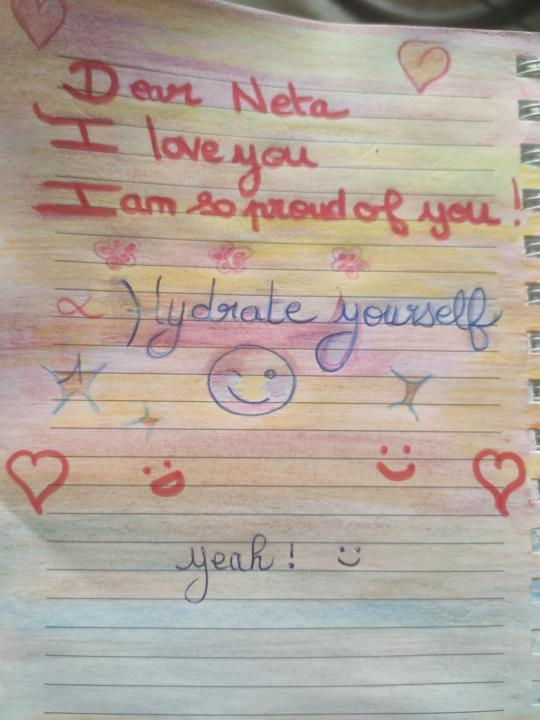 Dear Neta
I love you
I am so proud of you!
∝ Hydrate yourself
yeah!